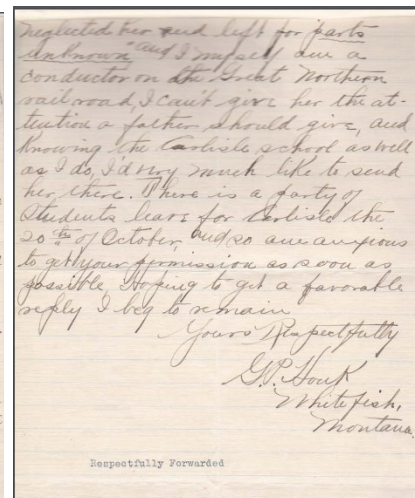 neglected her and left for "parts
unknown" and I myself am a
conductor on the Great Northern
railroad, I can't give her the at-
tention a father should give, and
knowing the Carlisle school as well
as I do, I'd very much like to send
her there. There is a party of
students leave for Carlisle the
20th of October, and so am anxious
to get your permission as soon as
possible, Hoping to get a favorable
reply I beg to remain
Yours Respectfully
G.P. Houk
Whitefish,
Montana.
Respectfully Forwarded